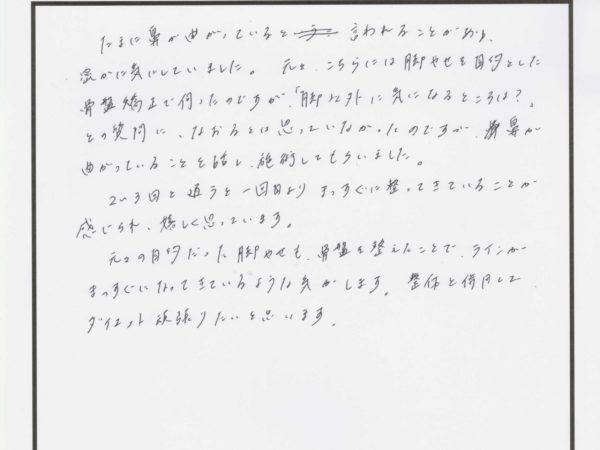 たまに鼻が曲がっていると 言われることがあり、
密かに気にしていました。元々、こちらには脚やせを目的とした
骨盤矯正で伺ったのですが、「脚以外に気になるところは?」
との質問に、なおるとは思っていなかったのですが、鼻が
曲がっていることを話し、施術してもらいました。
2、3回と通うと一回目より まっすぐに整ってきていることが
感じられ、嬉しく思っています。
元々の目的だった脚やせも、骨盤を整えたことで、ラインが
まっすぐになってきているような気がします。整体と併用して
ダイエット頑張りたいと思います。